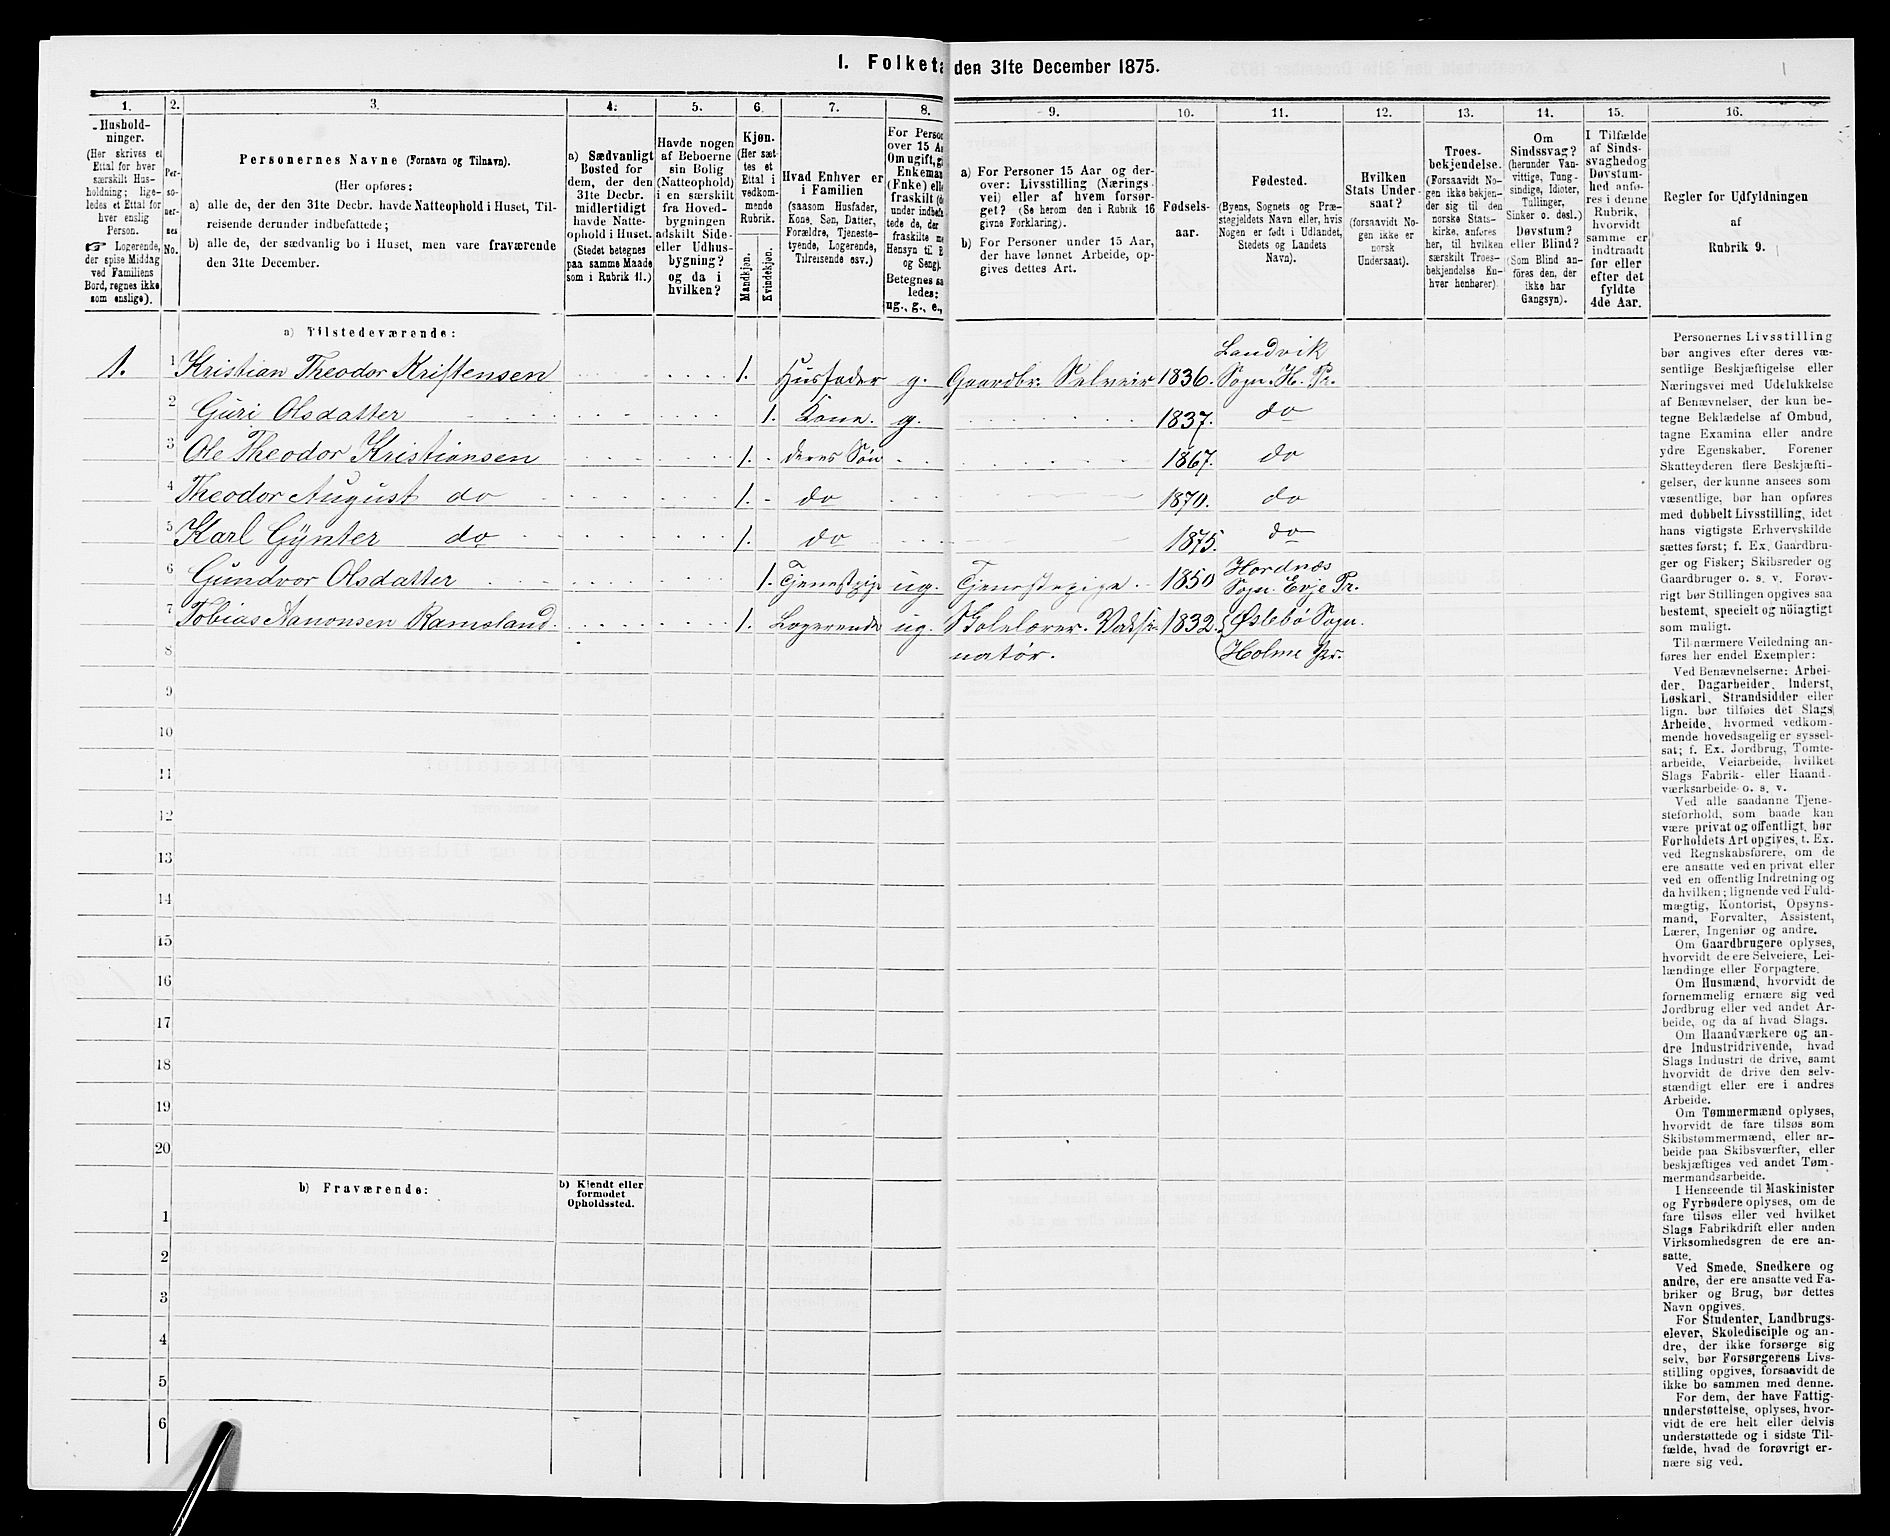 1. Folketæ den 31te December 1875.
1.
Hushold-
ninger.
(Her skrives et
Ettal for hver
særskilt Hus-
holdning; lige-
ledes et Ettal for
hver enslig
Person.
Logerende,
der spise Middag
ved Familiens
Bord, regnes ikke
som enslige).
2.
Per-
so-
ner-
nes
No.
3.
Personernes Navne (Fornavn og Tilnavn).
(Her opføres:
a) alle de, der den 31te Decbr. havde Natteophold i Huset, Til-
reisende derunder indbefattede;
b) alle de, der sædvanlig bo i Huset, men vare fraværende
den 31te December.
4.
a) Sædvanligt
Bosted for
dem, der den
31te Decbr.
midlertidigt
havde Natte-
ophold i Huset.
(Stedet betegnes
paa samme Maade
som i Rubrik 11.)
5.
Havde nogen
af Beboerne
sin Bolig
(Natteophold)
i en særskilt
fra Hoved-
bygningen
adskilt Side-
eller Udhus-
bygning?
og da i
hvilken?
6.
Kjøn.
(Her sæt-
tes et
Ettal i
vedkom-
mende
Rubrik.
Mandkjøn.
Kvindekjøn.
7.
Hvad Enhver er
i Familien
(saasom Husfader,
Kone, Søn, Datter,
Forældre, Tjeneste-
tyende, Logerende,
Tilreisende osv.)
8.
For Person
over 15 Aa
Om ugift, g
Enkeman
(Enke) ell
fraskilt (d
under indbef
tede de, der
fraskilte m
Hensyn til B
og Seng).
Betegnes saa
ledes:
ug., g., e.,
9.
a) For Personer 15 Aar og der-
over: Livsstilling (Nærings-
vei) eller af hvem forsør-
get? (Se herom den i Rubrik 16
givne Forklaring).
b) For Personer under 15 Aar,
der have lønnet Arbeide, op-
gives dettes Art.
10.
Fødsels-
aar.
11.
Fødested.
(Byens, Sognets og Præ-
stegjeldets Navn eller, hvis
Nogen er født i Udlandet,
Stedets og Landets
Navn).
12.
Hvilken
Stats Under-
saat?
(forsaavidt No-
gen ikke er
norsk
Undersaat).
13.
Troes-
bekjendelse.
(Forsaavidt No-
gen ikke bekjen-
der sig til den
norske Stats-
kirke, anføres
her, til hvilken
særskilt Troes-
bekjendelse En-
hver henhører).
14.
Om
Sindssvag?
(herunder Van-
vittige, Tung-
sindige, Idioter,
Tullinger,
Sinker o. desl.)
Døvstum?
eller Blind?
(Som Blind an-
føres den, der
ikke har
Gangsyn).
15.
I Tilfælde
af Sinds-
svaghed og
Døvstum-
hed anfø-
res i denne
Rubrik,
hvorvidt
samme er
indtraadt
før eller
efter det
fyldte
4de Aar.
16.
Regler for Udfyldningen
af
Rubrik 9.
a) Tilstedeværende:
1. 1 Kristian Theodor Kristensen 1. Husfader g. Gaardbr. Selveier 1836. Landvik
Sogn. H. Pr.
2 Guri Olsdatter 1. Kone. g. 1837. do
3 Ole Theodor Kristiansen 1. deres Søn 1867. do
4 Theodor August do 1. do 1870. do
5 Karl Gÿnter do 1. do 1875. do
6 Gundvor Olsdatter 1. Tjenestpige ug. Tjenestepige 1850 Hordnæs
Sogn. Evje Pr.
7 Tobias Aanonsen Ramsland. 1. Logerende ug. Skolelærer. Vaksi- 1832. Øslebö Sogn.
8 natör. Holme Pr.
9
10
11
12
13
14
15
16
17
18
19
20
b) Fraværende:
b) Kjendt eller
formodet
Opholdssted.
1
2
3
4
5
6
Personernes Livsstilling
bør angives efter deres væ-
sentlige Beskjæftigelse eller
Næringsvei med Udelukkelse
af Benævnelser, der kun be-
tegne Beklædelse af Ombud,
tagne Examina eller andre
ydre Egenskaber. Forener
Skatteyderen flere Beskjæfti-
gelser, der kunne ansees som
væsentlige, bør han opføres
med dobbelt Livsstilling, idet
hans vigtigste Erhvervskilde
sættes først; f. Ex. Gaardbru-
ger og Fisker; Skibsreder og
Gaardbruger o. s. v. Forøv-
rigt bør Stillingen opgives saa
bestemt, specielt og nöiagtigt
som muligt.
Til nærmere Veiledning an-
føres her endel Exempler:
Ved Benævnelserne: Arbei-
der, Dagarbeider, Inderst,
Løskarl, Strandsidder eller
lign. bør tilføies det Slags
Arbeide, hvormed vedkom-
mende hovedsagelig er syssel-
sat; f. Ex. Jordbrug, Tomte-
arbeide, Veiarbeide, hvilket
Slags Fabrik- eller Haand-
værksarbeide o. s. v.
Ved alle saadanne Tjene-
steforhold, som baade kan
være privat og offentligt, bør
Forholdets Art opgives, t. Ex.
ved Regnskabsførere, om de
ere ansatte ved en privat eller
ved en offentlig Indretning og
da hvilken; lignende ved Fuld-
mægtig, Kontorist, Opsyns-
mand, Forvalter, Assistent,
Lærer, Ingeniør og andre.
Om Gaardbrugere oplyses,
hvorvidt de ere Selveiere, Lei-
lændinge eller Forpagtere.
Om Husmænd, hvorvidt de
fornemmelig ernære sig ved
Jordbrug eller ved andet Ar-
beide, og da af hvad Slags.
Om Haandværkere og an-
dre Industridrivende, hvad
Slags Industri de drive, samt
hvorvidt de drive den selv-
stændigt eller ere i andres
Arbeide.
Om Tømmermænd oplyses,
hvorvidt de fare tilsøs som
Skibstømmermænd, eller ar-
beide paa Skibsværfter, eller
beskjæftiges ved andet Tøm-
mermandsarbeide.
I Henseende til Maskinister
og Fyrbødere oplyses, om de
fare tilsøs eller ved hvilket
Slags Fabrikdrift eller anden
Virksomhedsgren de ere an-
satte.
Ved Smede, Snedkere og
andre, der ere ansatte ved Fa-
briker og Brug, bør dettes
Navn opgives.
For Studenter, Landbrugs-
elever, Skoledisciple og an-
dre, der ikke forsørge sig
selv, bør Forsørgerens Livs-
stilling opgives, forsaavidt de
ikke bo sammen med denne.
For dem, der have Fattig-
understøttelse, oplyses, hvor-
vidt de ere helt eller delvis
understøttede og i sidste Til-
fælde, hvad de forøvrigt er-
nære sig ved.